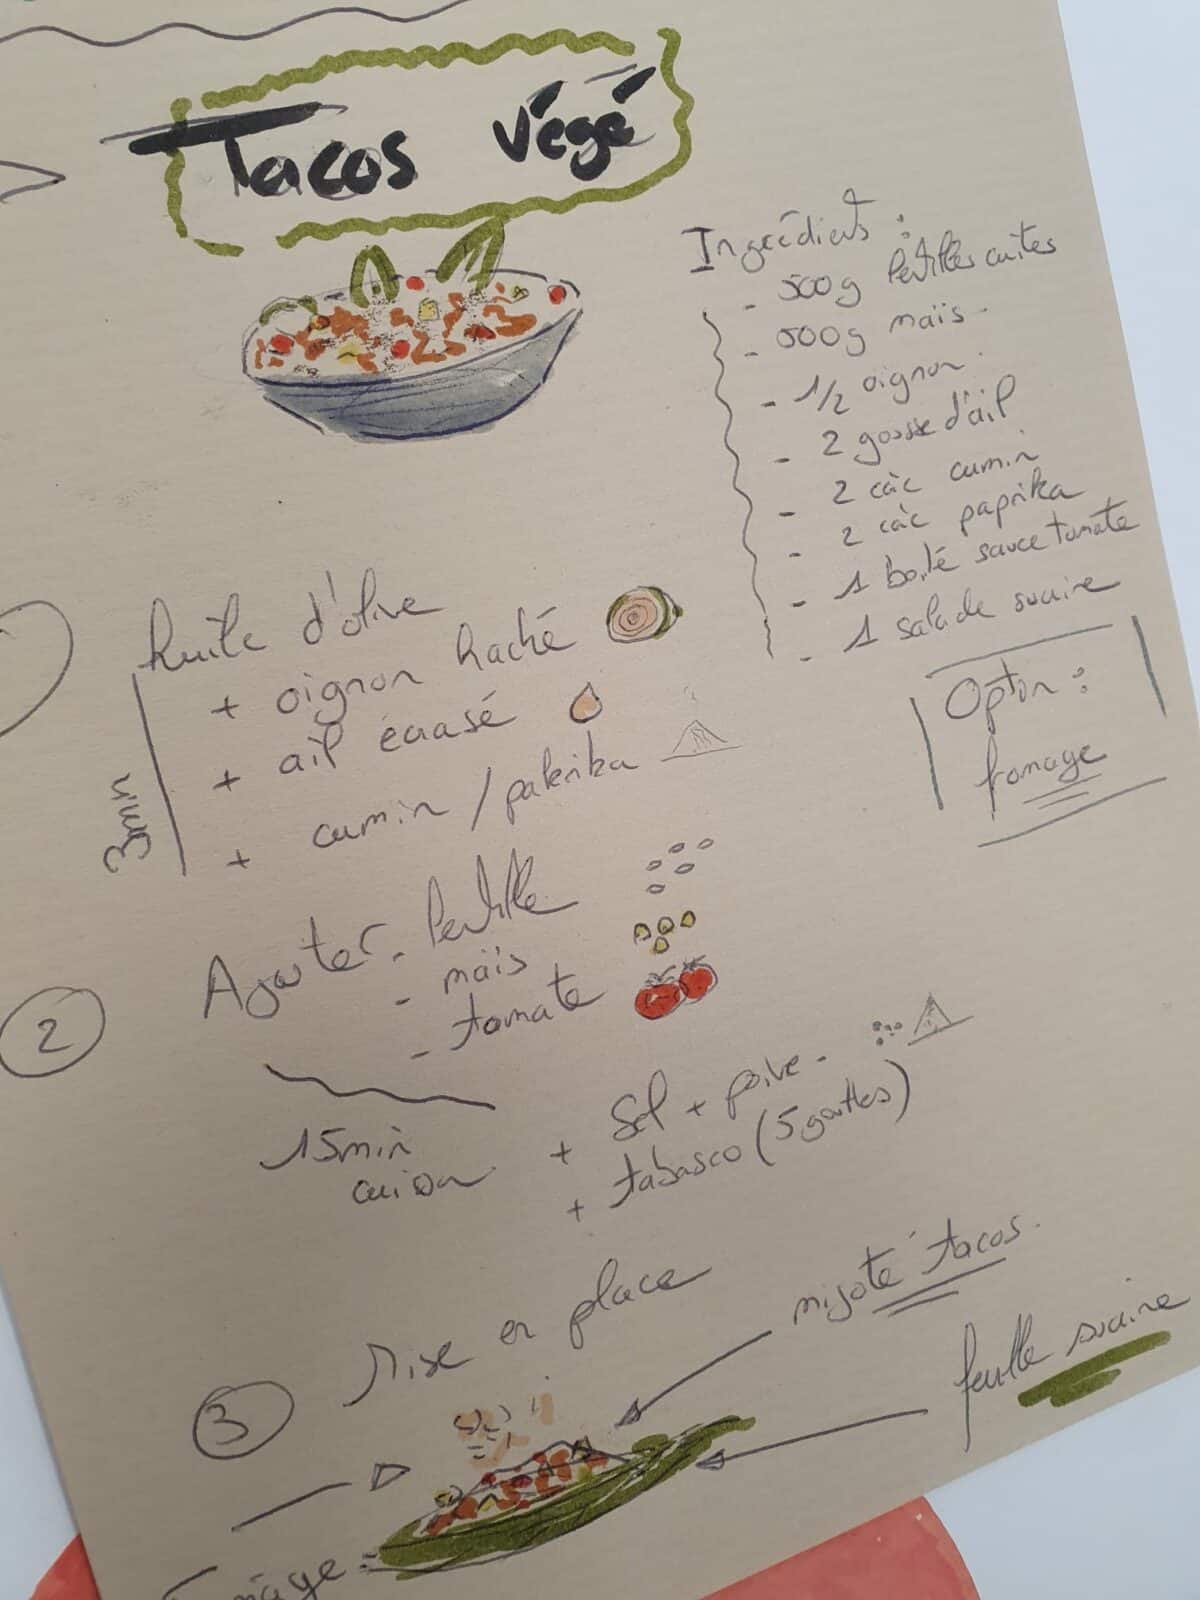 Tacos végé
Ingrédients :
- 500g lentilles cuites
- 500g maïs
- 1/2 oignon
- 2 gousse d'ail
- 2 càc cumin
- 2 càc paprika
- 1 boîte sauce tomate
- 1 salade sucrine
Option :
fromage
huile d'olive
+ oignon haché
+ ail écrasé
+ cumin / pakrika
3min
2
Ajouter - lentille
- maïs
- tomate
15min
cuisson
+ Sel + poivre
+ tabasco (5 gouttes)
3
Mise en place
mijoté tacos.
feuille sucrine